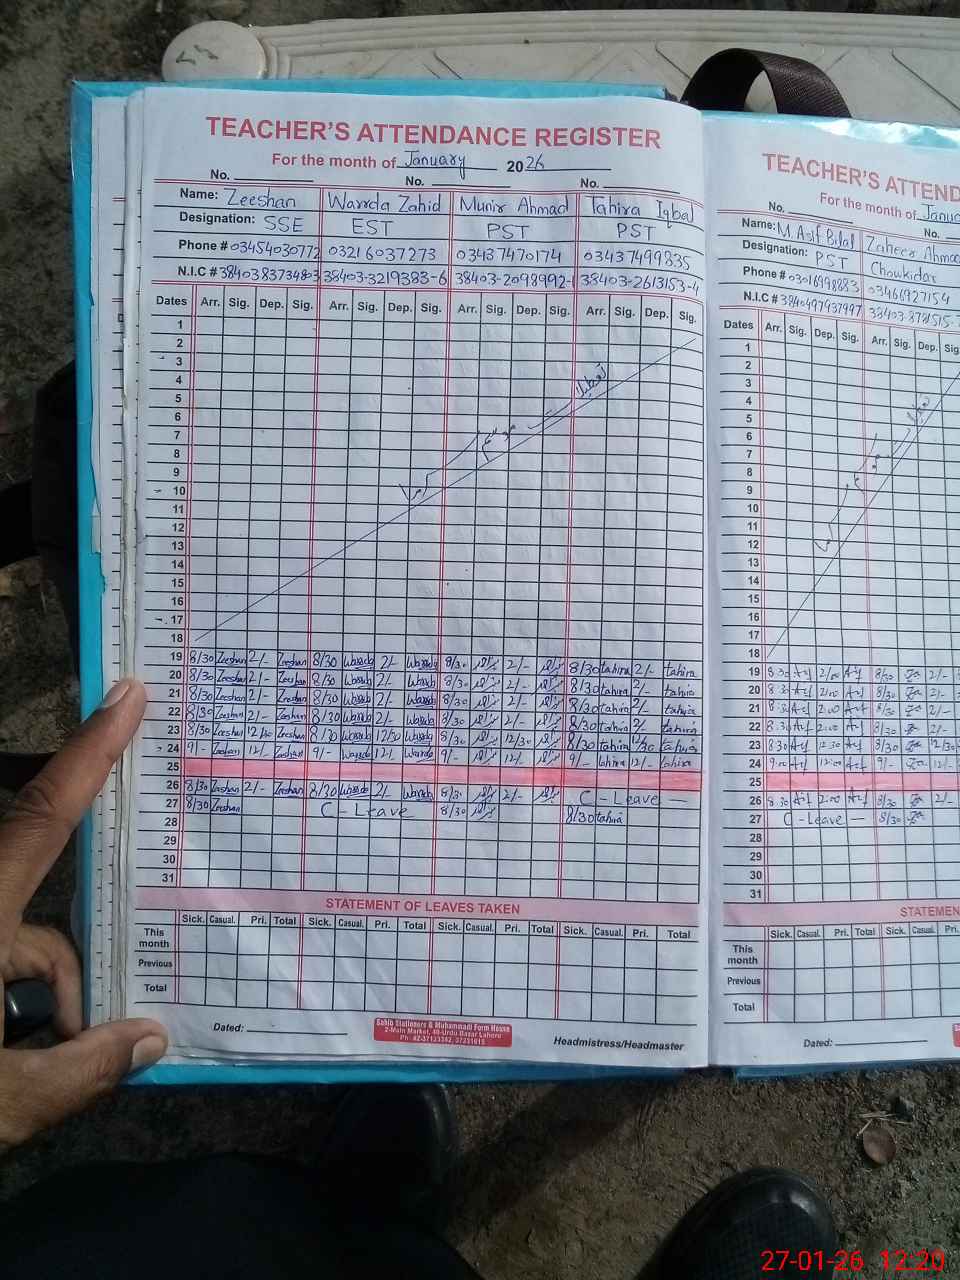 TEACHER'S ATTENDANCE REGISTER
For the month of January 2026
No. No. No.
Name: Zeeshan Warrda Zahid Munir Ahmad Tahira Iqbal
Designation: SSE EST PST PST
Phone # 03454030772 03216037273 03437470174 03437499335
N.I.C # 3840383734803 38403-3219383-6 38403-2098992-1 38403-2613153-4
Dates Arr. Sig. Dep. Sig. Arr. Sig. Dep. Sig. Arr. Sig. Dep. Sig. Arr. Sig. Dep. Sig.
1
2
3
4
5
6
7
8
9
10
11
12
13
14
15
16
17
18
موسم تعطیلات
19 8/30 Zeeshan 2/- Zeeshan 8/30 Warrda 2/- Warrda 8/30 2/- 8/30 tahira 2/- tahira
20 8/30 Zeeshan 2/- Zeeshan 8/30 Warrda 2/- Warrda 8/30 2/- 8/30 tahira 2/- tahira
21 8/30 Zeeshan 2/- Zeeshan 8/30 Warrda 2/- Warrda 8/30 2/- 8/30 tahira 2/- tahira
22 8/30 Zeeshan 2/- Zeeshan 8/30 Warrda 2/- Warrda 8/30 2/- 8/30 tahira 2/- tahira
23 8/30 Zeeshan 12/30 Zeeshan 8/30 Warrda 12/30 Warrda 8/30 12/30 8/30 Tahira 12/30 tahira
24 9/- Zeeshan 12/- Zeeshan 9/- Warrda 12/- Warrda 9/- 12/- 9/- tahira 12/- tahira
25
26 8/30 Zeeshan 2/- Zeeshan 8/30 Warrda 2/- Warrda 8/30 2/- C - Leave —
27 8/30 Zeeshan C - Leave 8/30 8/30 tahira
28
29
30
31
STATEMENT OF LEAVES TAKEN
Sick. Casual. Pri. Total Sick. Casual. Pri. Total Sick. Casual. Pri. Total Sick. Casual. Pri. Total
This month
Previous
Total
Dated:
Sahib Stationers & Muhammadi Form House
2-Main Market, 40-Urdu Bazar Lahore
Ph: 42-37123342, 37231615
Headmistress/Headmaster
TEACHER'S ATTEND
For the month of Januar
No. No.
Name: M. Asif Bilal Zaheer Ahmad
Designation: PST Choukidar
Phone # 03016998883 03466927154
N.I.C # 3840497437997
Dates Arr. Sig. Dep. Sig. Arr. Sig. Dep. Sig.
1
2
3
4
5
6
7
8
9
10
11
12
13
14
15
16
17
18
19 8:30 Asf 2:00 Asf 8/30 2/-
20 8:30 Asf 2:00 Asf 8/30 2/-
21 8:30 Asf 2:00 Asf 8/30 2/-
22 8:30 Asf 2:00 Asf 8/30 2/-
23 8:30 Asf 12:30 Asf 8/30 12/30
24 9:00 Asf 12:00 Asf 9/- 12/-
25
26 8:30 Asf 2:00 Asf 8/30 2/-
27 C - Leave — 8/30
28
29
30
31
STATEMEN
Sick. Casual. Pri. Total Sick. Casual. Pri.
This month
Previous
Total
Dated:
27-01-26 12:20